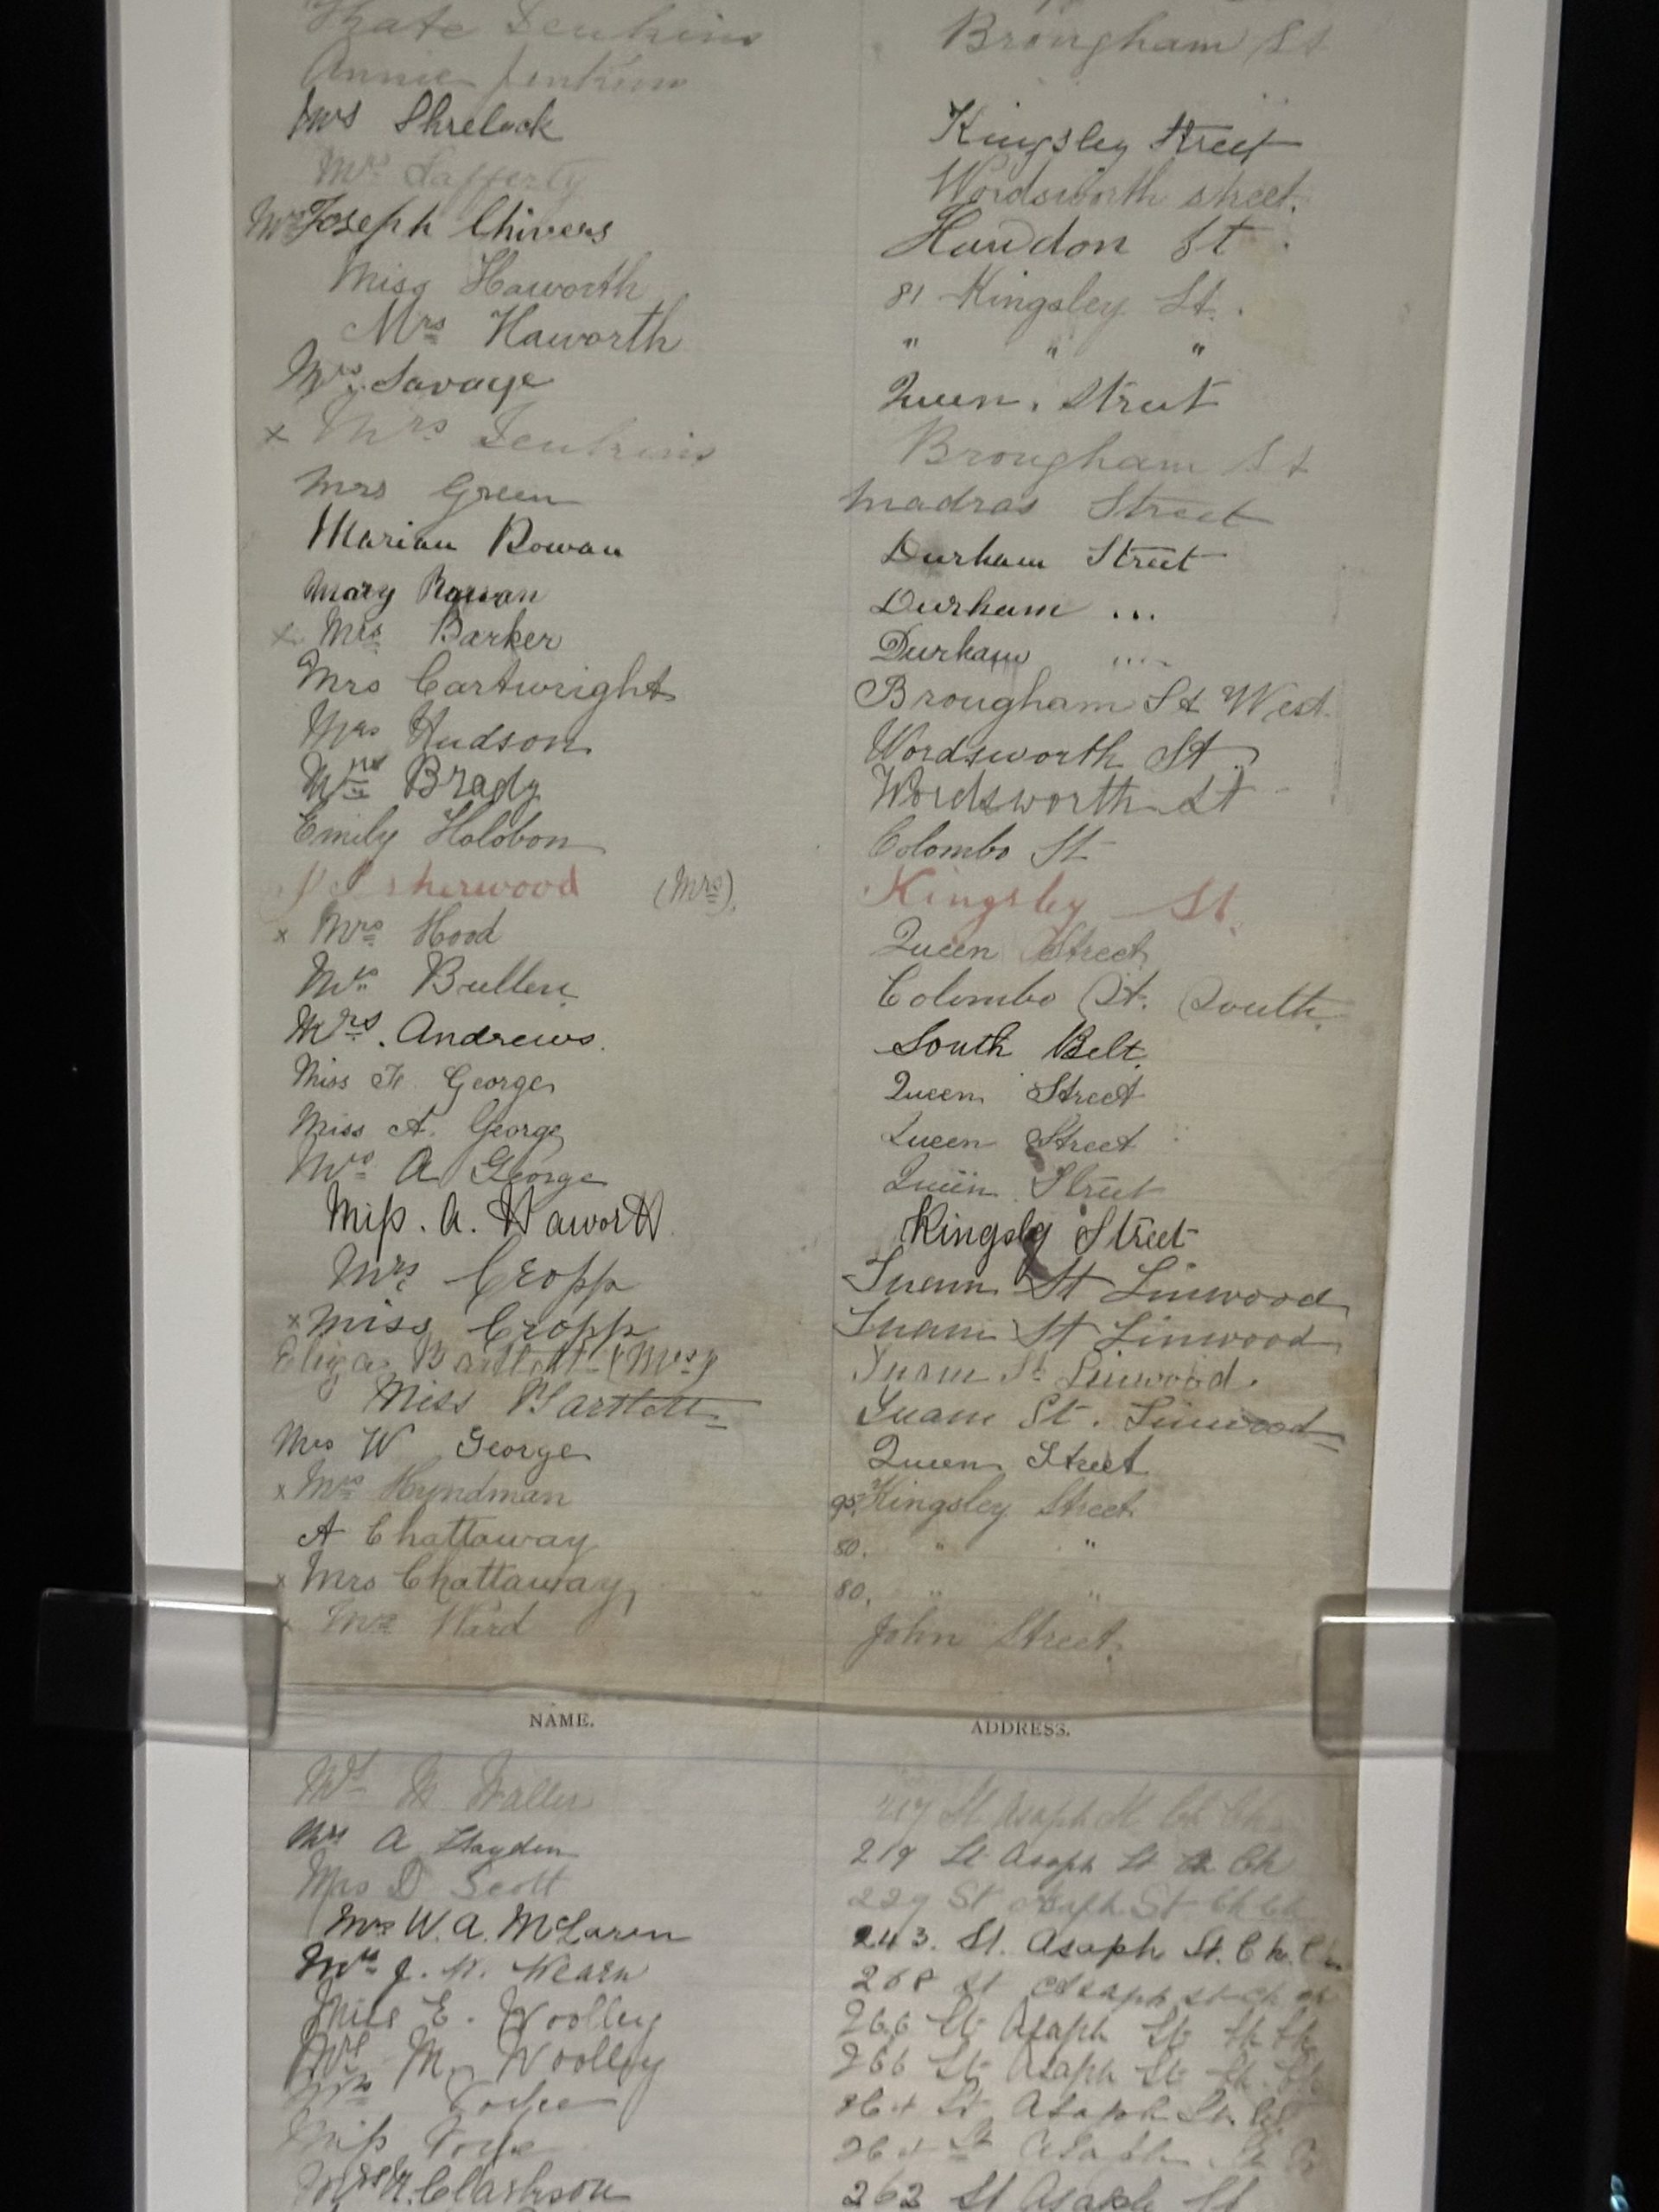 Kate Jenkins Brougham St
Annie Jenkins
Mrs Shrelock Kingsley Street
Mrs Lafferty Wordsworth street.
Mrs Joseph Chivers Hawdon St.
Miss Haworth 81 Kingsley St.
Mrs Haworth " " "
Mrs Savage Queen. Street
x Mrs Jenkins Brougham St
Mrs Green Madras Street
Marian Rowan Durham Street
Mary Rowan Durham ...
x Mrs Barker Durham ....
Mrs Cartwright Brougham St West.
Mrs Hudson Wordsworth St.
Mrs Brady Wordsworth St
Emily Holobon Colombo St
Sherwood (Mrs). Kingsley St.
x Mrs Hood Queen Street
Mrs Bullen Colombo St. South.
Mrs. Andrews. South Belt.
Miss F. George Queen Street
Miss A. George Queen Street
Mrs A George Queen Street
Miss. A. Haworth Kingsly Street
Mrs Cropp Tuam St Linwood
x Miss Cropp Tuam St Linwood
Eliza Bartlett (Mrs) Tuam St Linwood.
Miss Bartlett Tuam St. Linwood
Mrs W George Queen Street
x Mrs Hyndman 95 Kingsley Street
A Chattaway 80. " "
x Mrs Chattaway, 80. " "
x Mrs Ward John Street.
NAME. ADDRESS.
Mrs Waller St Asaph St Ch Ch
Mrs A Hayden 219 St Asaph St Ch Ch
Mrs D Scott 229 St Asaph St Ch Ch
Mrs W. A. McLaren 243. St. Asaph St. Ch. Ch
Mrs J. Wearn 268 St Asaph St Ch Ch
Miss E. Woolley 266 St Asaph St Ch Ch
Mrs M. Woolley 266 St Asaph St Ch. Ch
Mrs 264 St Asaph St. Ch
Miss 264 St Asaph St
Mrs Clarkson 262 St Asaph St